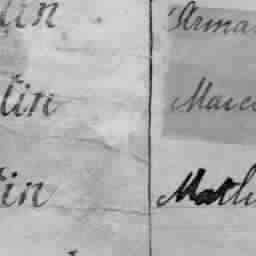 tin Arma
tin Marc
tin Math